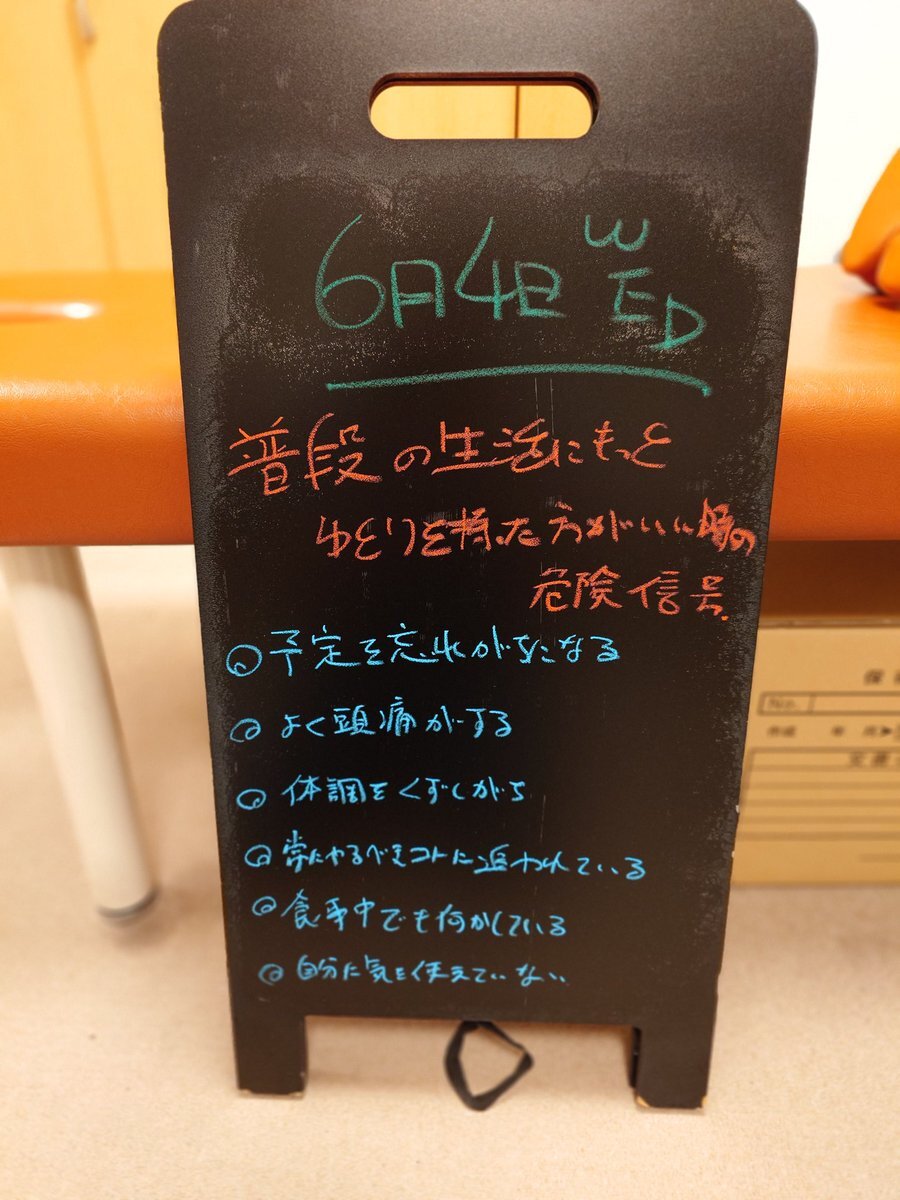 6月4日 WED
普段の生活にもっと
ゆとりを持った方がいい時の
危険信号
◎予定を忘れがちになる
◎よく頭痛がする
◎体調をくずしがち
◎常にやるべきコトに追われている
◎食事中でも何かしている
◎自分に気を使えていない
No.